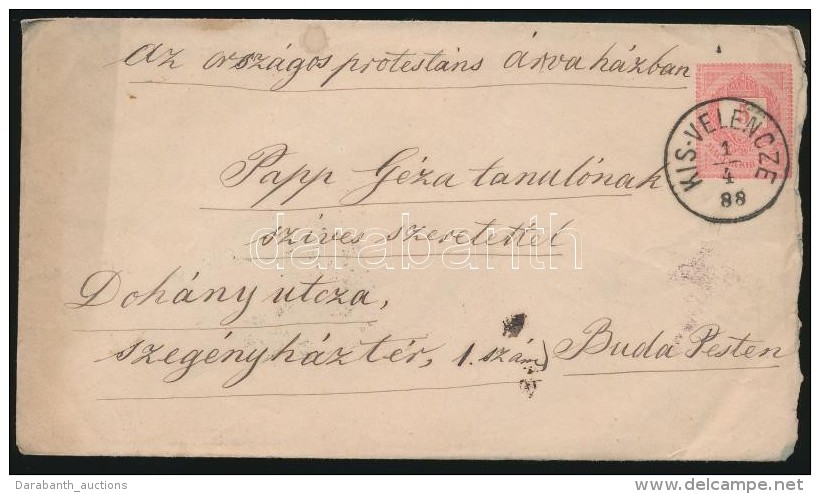 az országos protestáns árvaházban
KIS-VELENCZE
1
4
88
5
Papp Géza tanulónak
szíves szeretettel
darabanth
Dohány utcza,
szegényháztér, 1. szám)
Buda Pesten
Darabanth_auctions
www.delcampe.net